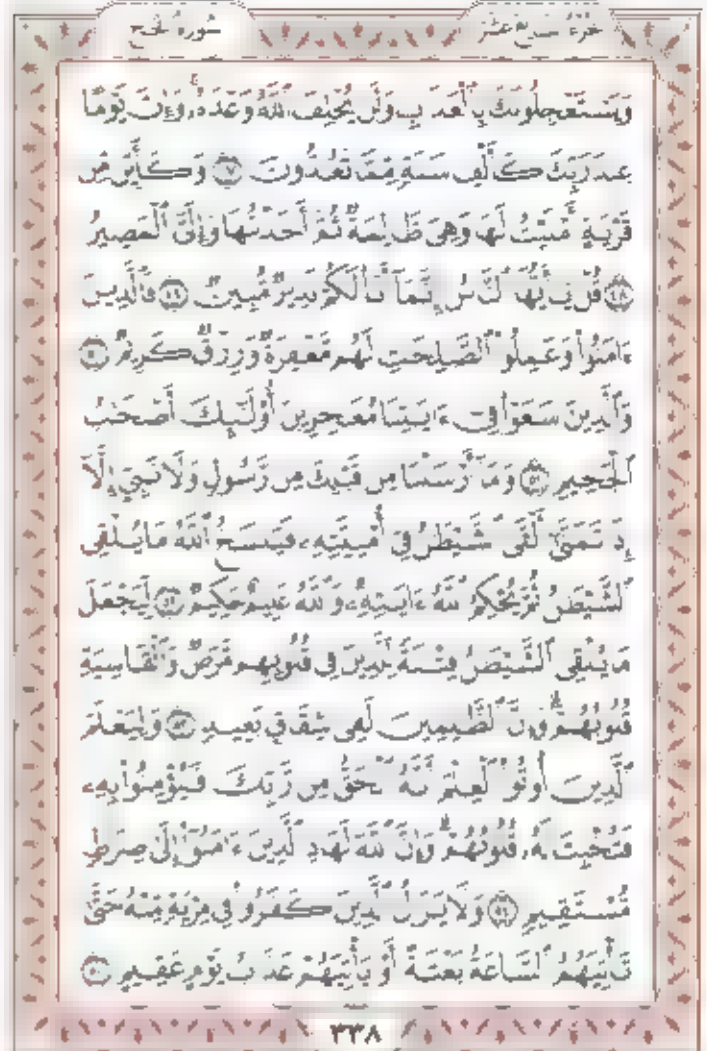 سورة الحج
الجزء السابع عشر
وَيَسْتَعْجِلُونَكَ بِٱلْعَذَابِ وَلَن يُخْلِفَ ٱللَّهُ وَعْدَهُۥ ۚ وَإِنَّ يَوْمًا
عِندَ رَبِّكَ كَأَلْفِ سَنَةٍ مِّمَّا تَعُدُّونَ ٤٧ وَكَأَيِّن مِّن
قَرْيَةٍ أَمْلَيْتُ لَهَا وَهِىَ ظَالِمَةٌ ثُمَّ أَخَذْتُهَا وَإِلَىَّ ٱلْمَصِيرُ
٤٨ قُلْ يَٰٓأَيُّهَا ٱلنَّاسُ إِنَّمَآ أَنَا۠ لَكُمْ نَذِيرٌ مُّبِينٌ ٤٩ فَٱلَّذِينَ
ءَامَنُوا۟ وَعَمِلُوا۟ ٱلصَّٰلِحَٰتِ لَهُم مَّغْفِرَةٌ وَرِزْقٌ كَرِيمٌ ٥٠
وَٱلَّذِينَ سَعَوْا۟ فِىٓ ءَايَٰتِنَا مُعَٰجِزِينَ أُو۟لَٰٓئِكَ أَصْحَٰبُ
ٱلْجَحِيمِ ٥١ وَمَآ أَرْسَلْنَا مِن قَبْلِكَ مِن رَّسُولٍ وَلَا نَبِىٍّ إِلَّآ
إِذَا تَمَنَّىٰٓ أَلْقَى ٱلشَّيْطَٰنُ فِىٓ أُمْنِيَّتِهِۦ فَيَنسَخُ ٱللَّهُ مَا يُلْقِى
ٱلشَّيْطَٰنُ ثُمَّ يُحْكِمُ ٱللَّهُ ءَايَٰتِهِۦ ۗ وَٱللَّهُ عَلِيمٌ حَكِيمٌ ٥٢ لِّيَجْعَلَ
مَا يُلْقِى ٱلشَّيْطَٰنُ فِتْنَةً لِّلَّذِينَ فِى قُلُوبِهِم مَّرَضٌ وَٱلْقَاسِيَةِ
قُلُوبُهُمْ ۗ وَإِنَّ ٱلظَّٰلِمِينَ لَفِى شِقَاقٍۭ بَعِيدٍ ٥٣ وَلِيَعْلَمَ
ٱلَّذِينَ أُوتُوا۟ ٱلْعِلْمَ أَنَّهُ ٱلْحَقُّ مِن رَّبِّكَ فَيُؤْمِنُوا۟ بِهِۦ
فَتُخْبِتَ لَهُۥ قُلُوبُهُمْ ۗ وَإِنَّ ٱللَّهَ لَهَادِ ٱلَّذِينَ ءَامَنُوٓا۟ إِلَىٰ صِرَٰطٍ
مُّسْتَقِيمٍ ٥٤ وَلَا يَزَالُ ٱلَّذِينَ كَفَرُوا۟ فِى مِرْيَةٍ مِّنْهُ حَتَّىٰ
تَأْتِيَهُمُ ٱلسَّاعَةُ بَغْتَةً أَوْ يَأْتِيَهُمْ عَذَابُ يَوْمٍ عَقِيمٍ ٥٥
٣٣٨